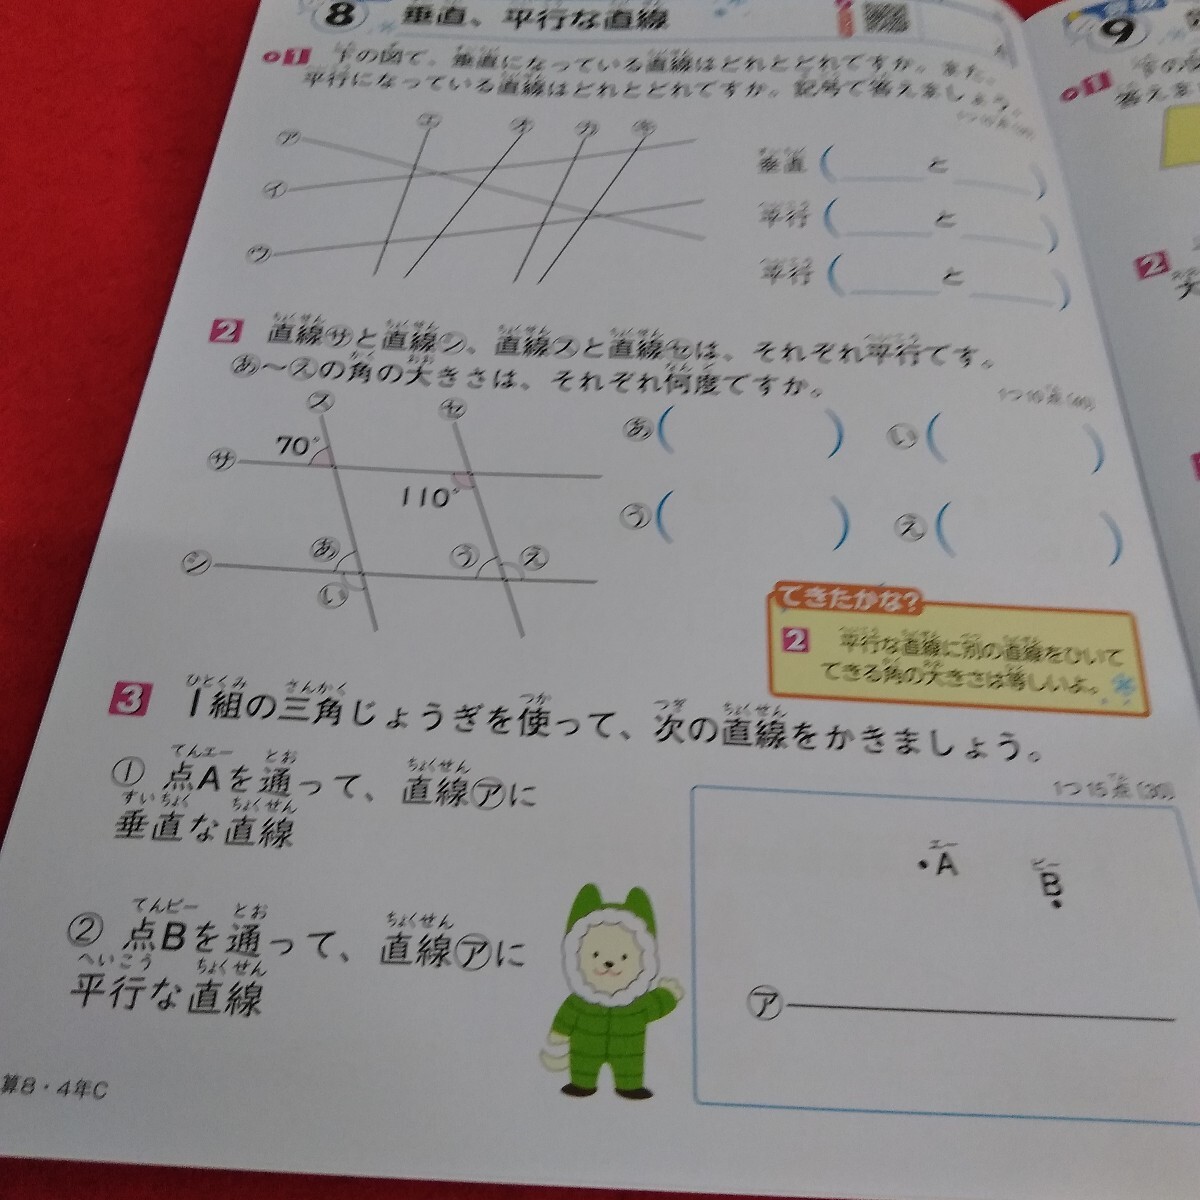 8 垂直、平行な直線
1 下の図で、垂直になっている直線はどれとどれですか。また、
平行になっている直線はどれとどれですか。記号で答えましょう。
ア
イ
ウ
エ
オ
カ
キ
垂直( と )
平行( と )
平行( と )
2 直線サと直線シ、直線スと直線セは、それぞれ平行です。
あ〜えの角の大きさは、それぞれ何度ですか。
1つ10点(40)
ス
セ
サ
シ
70°
110°
あ
い
う
え
あ( ) い( )
う( ) え( )
できたかな?
2 平行な直線に別の直線をひいて
できる角の大きさは等しいよ。
3 1組の三角じょうぎを使って、次の直線をかきましょう。
1つ15点(30)
① 点Aを通って、直線アに
垂直な直線
② 点Bを通って、直線アに
平行な直線
A
B
ア
算8・4年C
9
1
答えま
2